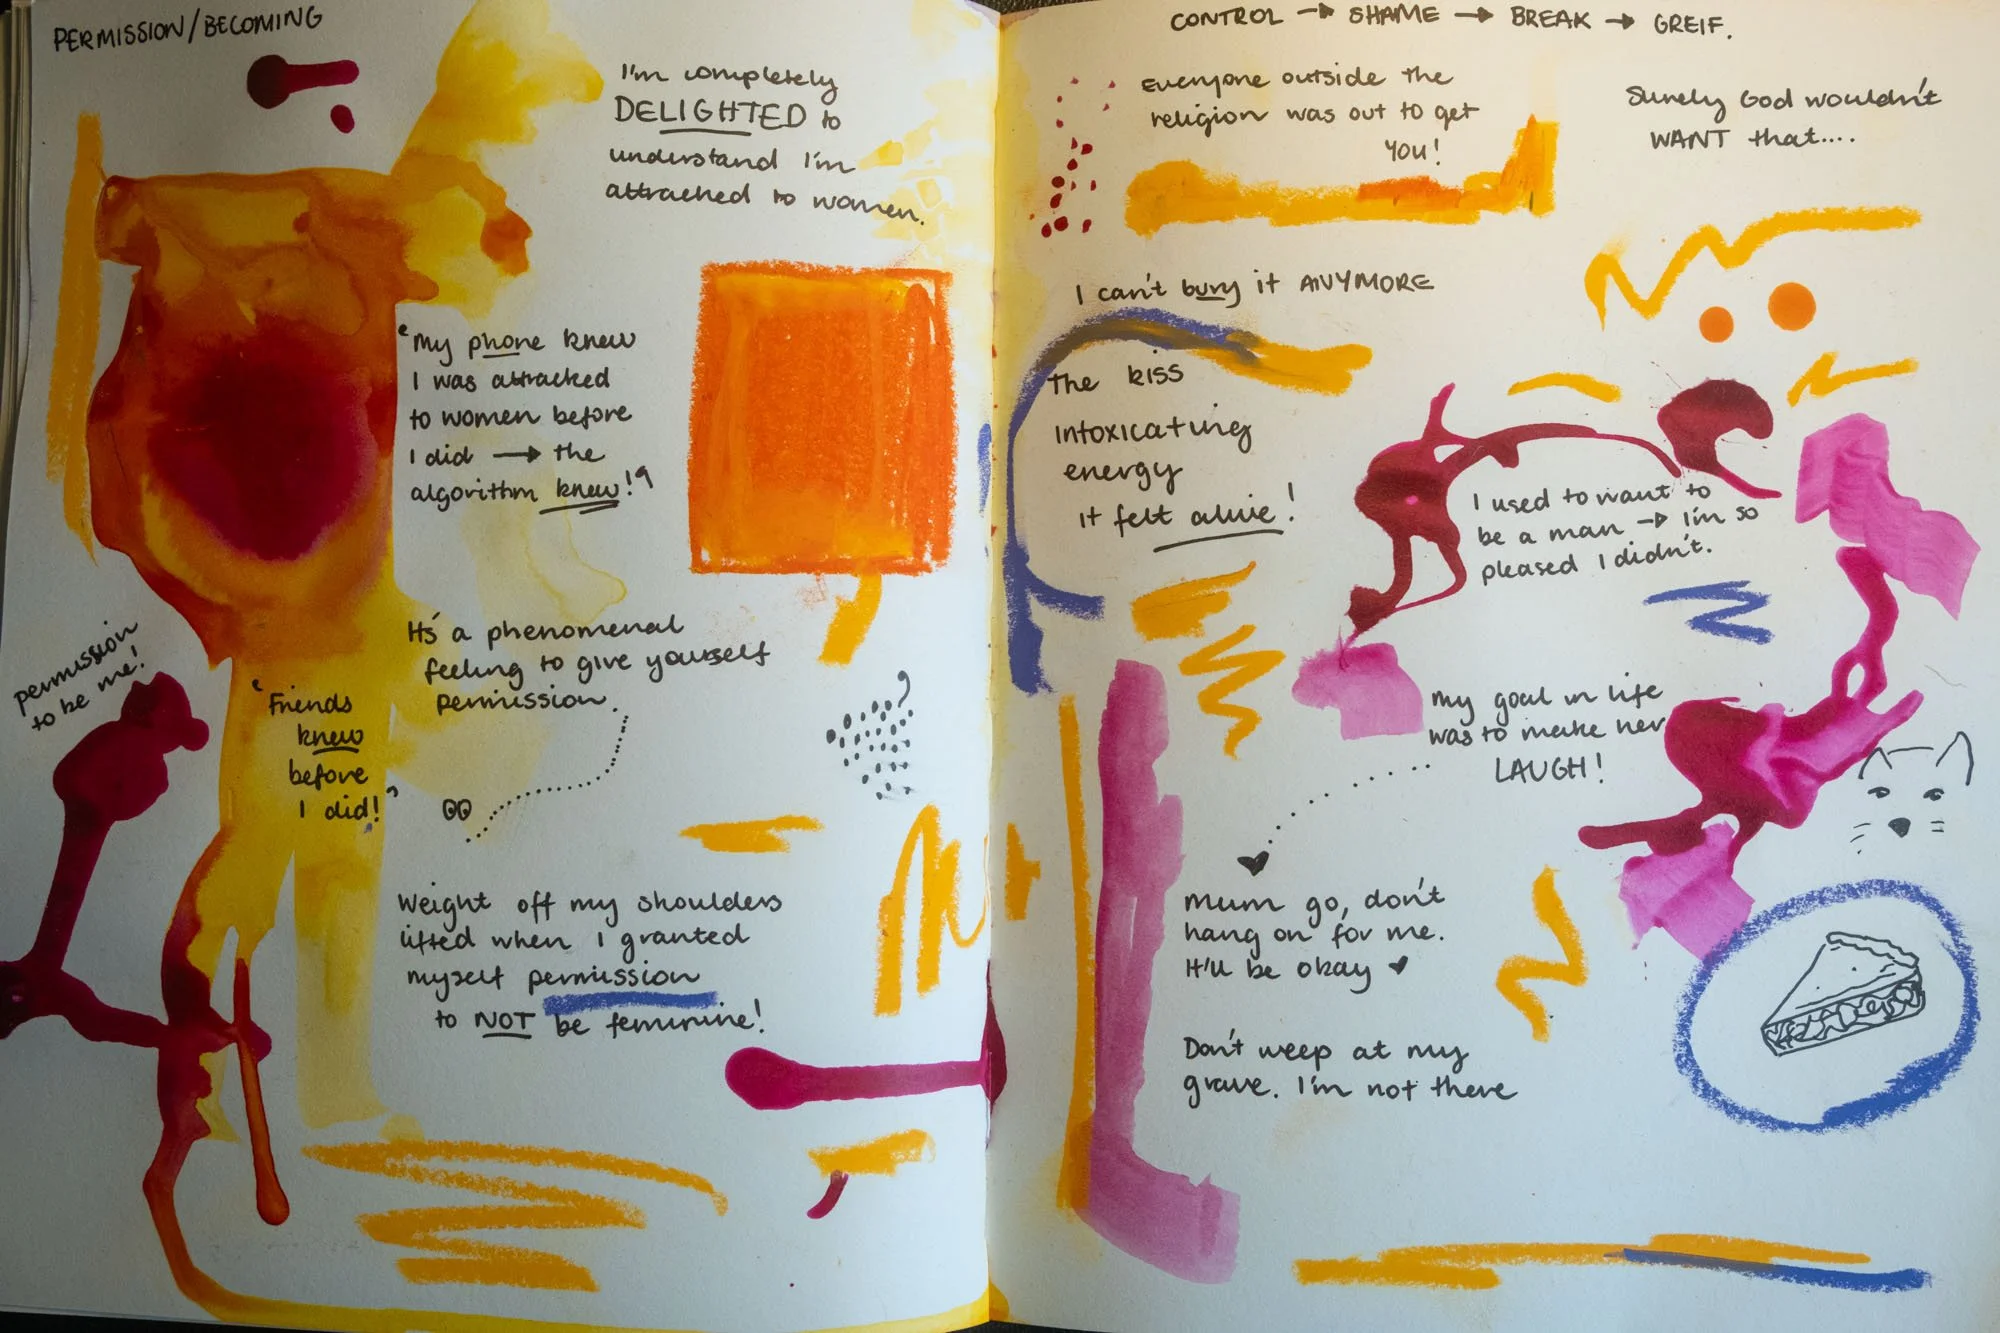 PERMISSION/BECOMING
I'm completely
DELIGHTED to
understand I'm
attracted to women.
"My phone knew
I was attracked
to women before
I did → the
algorithm knew!"
It's a phenomenal
feeling to give yourself
permission.
permission
to be me!
"Friends
knew
before
I did!"
Weight off my shoulders
lifted when I granted
myself permission
to NOT be feminine!
CONTROL → SHAME → BREAK → GREIF.
Everyone outside the
religion was out to get
YOU!
Surely God wouldn't
WANT that....
I can't bury it ANYMORE
The kiss
intoxicating
energy
it felt alive!
I used to want to
be a man → I'm so
pleased I didn't.
My goal in life
was to make her
LAUGH!
Mum go, don't
hang on for me.
It'll be okay ♥
Don't weep at my
grave. I'm not there